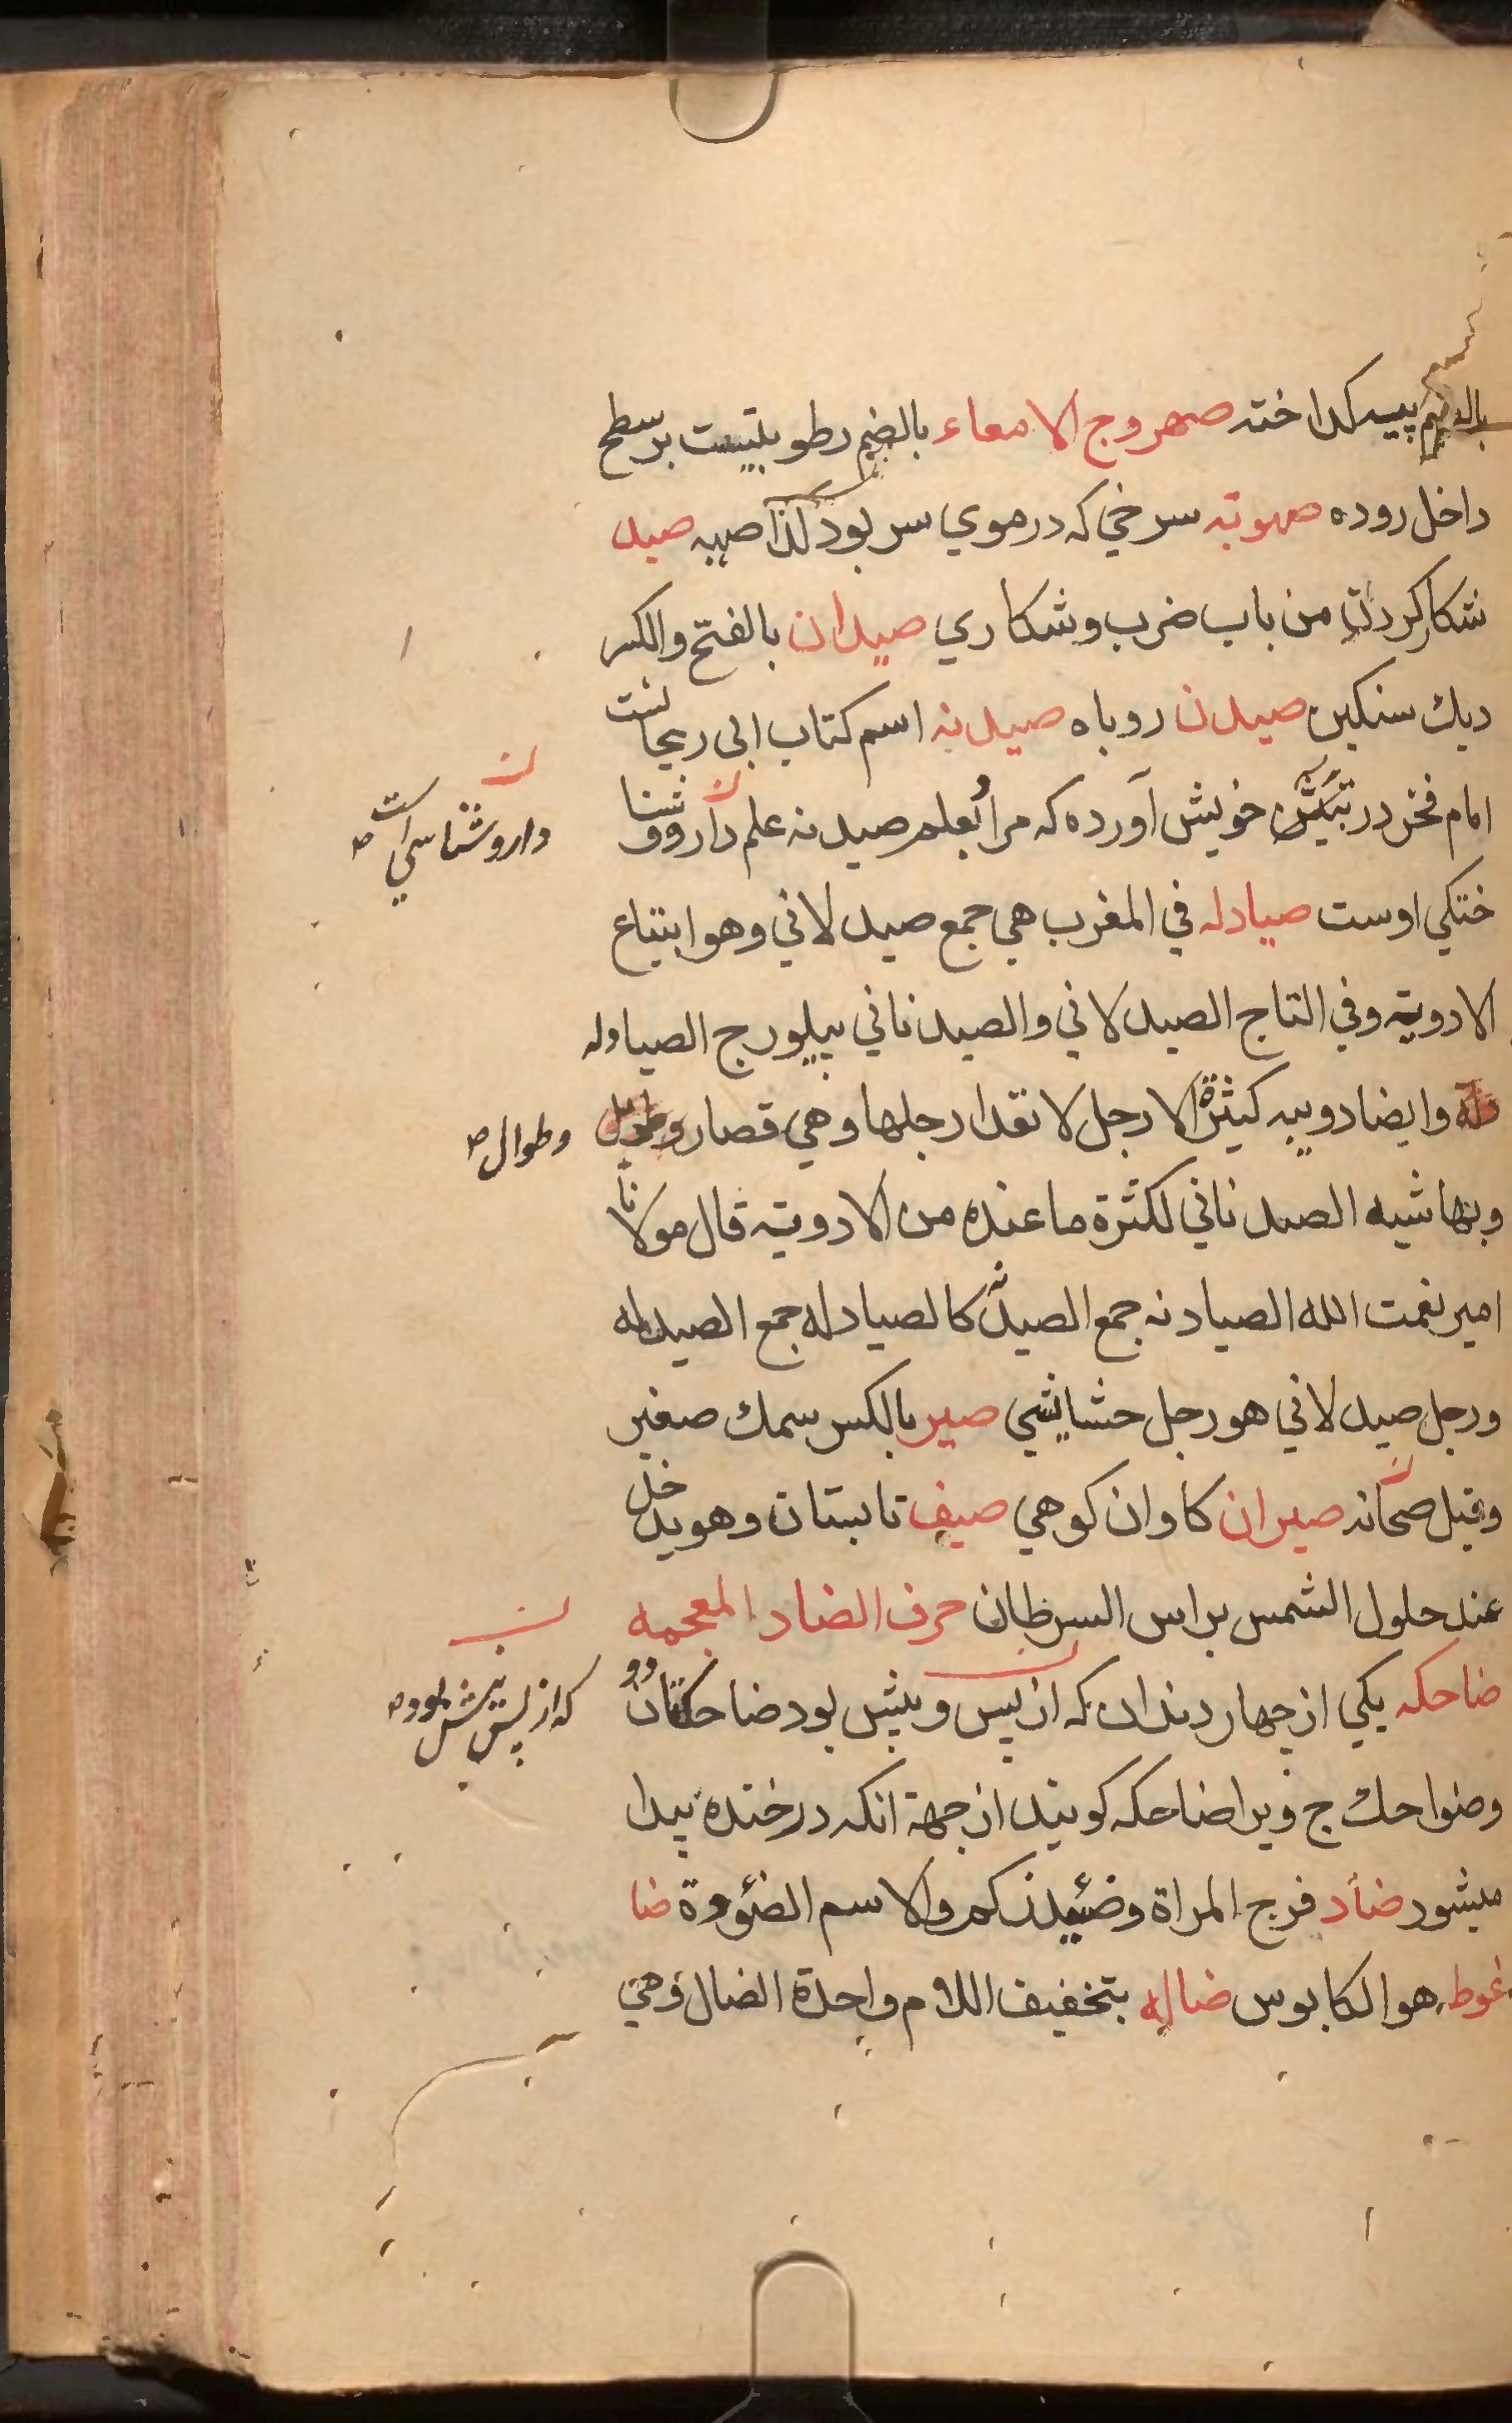 بالضم پیه كداخته صهروج الامعاء بالضم رطوبتیست بر سطح
داخل روده صهوبة سرخي كه در موي سر بود كذا صهبه صید
شكار كردن من باب ضرب وشكاري صیدان بالفتح والكسر
دیك سنكین صیدن روباه صیدنه اسم كتاب ابی ریحانست
امام فخر در خویش آورده كه مرا بعلم صیدنه علم داروشنا
داروشناسي است صح
ختكي اوست صیادله في المغرب هي جمع صیدلاني وهو ابتیاع
الادویة وفي التاج الصیدلاني والصیدناني پیلور ج الصیادله
وایضا دویبه كثیرة الارجل لا تعد ارجلها وهي قصار وطوال
وطوال صح
وبها شبه الصیدناني لكثرة ما عنده من الادویة قال مولانا
امیر نعمت الله الصیادنه جمع الصیدنه كالصیادله جمع الصیدله
ورجل صیدلاني هو رجل حشایشي صیر بالكسر سمك صغیر
وقیل صحانه صیران كاوان كوهي صیف تابستان وهو یدخل
عند حلول الشمس براس السرطان حرف الضاد المعجمه
ضاحكه یكي از چهار دندان كه از پس وپیش بود ضاحكتان دو
كه از پس پیش بود صح
وضواحك ج ویرا ضاحكه كویند از جهة انكه در خنده پیدا
میشود ضأد فرج المراة وضئید زكم والاسم الضؤودة ضا
غوط هو الكابوس ضاله بتخفیف اللام واحدة الضال وهي